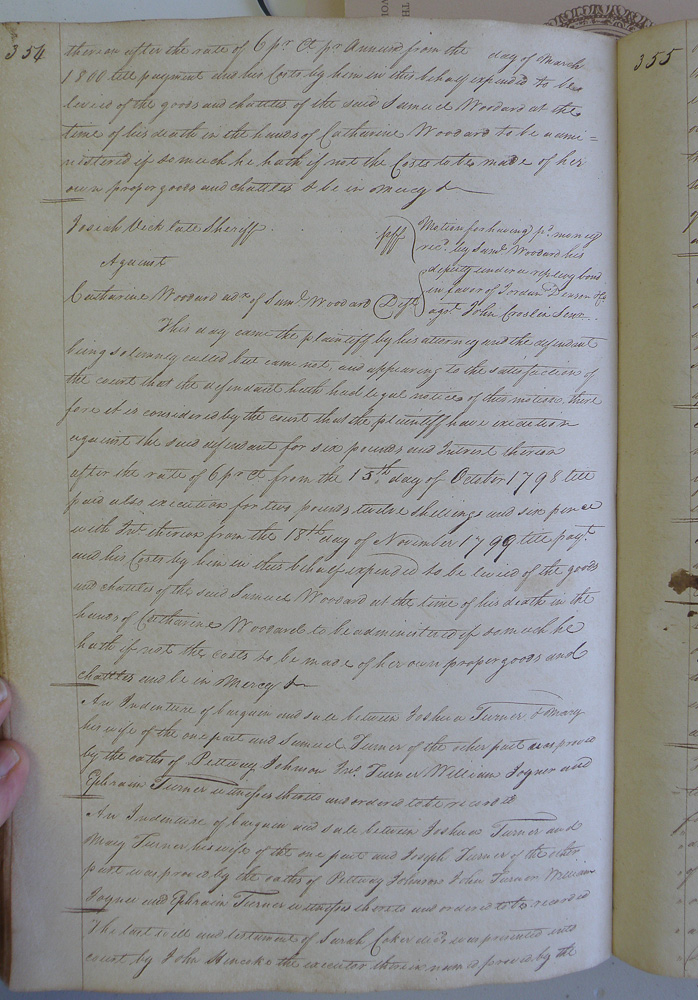 354
thereon after the rate of 6 pr Ct pr Annum from the day of March
1800 till payment and his Costs by him in this behalf expended to be
levied of the goods and chattles of the said Samuel Woodard at the
time of his death in the hands of Catharine Woodard to be admi=
nistered if so much he hath if not the Costs to be made of her
own proper goods and chattles & be in mercy &
Josiah Vick late Sheriff pff
Against
Catharine Woodard adx of Saml Woodard Deft
Motion for having pd money
recd by Saml Woodard his
deputy under a replevy bond
in favor of Jordan Denson &Co
agst John Crosbie Senr
This day came the plaintiff by his attorney and the defendant
being solemnly called but came not, and appearing to the satisfaction of
the court that the defendant hath had legal notice of this motion there
fore it is considered by the court that the plaintiff have execution
against the said defendant for six pounds and Intrest thereon
after the rate of 6 pr ct from the 15th day of October 1798 till
paid also execution for two pounds twelve shillings and six pence
with Int thereon from the 18th day of November 1799 till payt
and his Costs by him in this behalf expended to be levied of the goods
and chattles of the said Samuel Woodard at the time of his death in the
hands of Catharine Woodard to be administered if so much he
hath if not the costs to be made of her own proper goods and
chattles and be in Mercy &
An Indenture of bargain and sale between Joshua Turner & Mary
his wife of the one part and Samuel Turner of the other part was proved
by the oaths of Pettway Johnson Jno Turner William Joyner and
Ephraim Turner witnesses thereto and ordered to be recorded
An Indenture of bargain and sale between Joshua Turner and
Mary Turner his wife of the one part and Joseph Turner of the other
part was proved by the oaths of Pettway Johnson John Turner William
Joyner and Ephraim Turner witnesses thereto and ordered to be recorded
The last will and testament of Sarah Coker decd was presented into
court by John the executor therein named proved by the
355